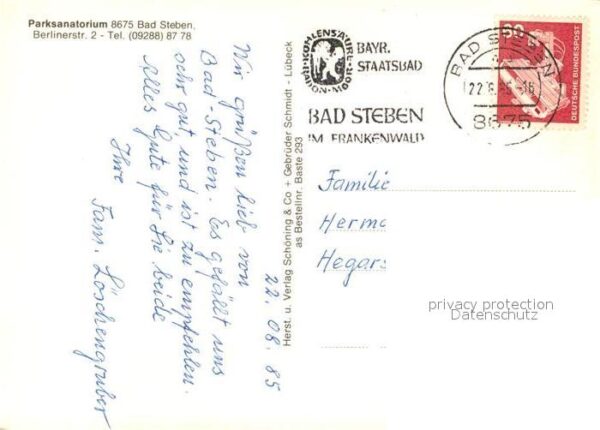 Parksanatorium 8675 Bad Steben,
Berlinerstr. 2 - Tel. (09288) 87 78
Wir grüßen lieb von
Bad-Steben. Es gefällt uns
sehr gut, und ist zu empfehlen.
Alles Gute für Sie beide
Ihre Fam. Löschengruber
22.08.85
Herst. u. Verlag Schöning & Co + Gebrüder Schmidt - Lübeck
as Bestellnr. Baste 293
RADON-KOHLENSÄURE-MOOR
BAYR.
STAATSBAD
BAD STEBEN
IM FRANKENWALD
BAD STEBEN
22.8.85-16
8675
80
DEUTSCHE BUNDESPOST
Familie
Herma
Hegars
privacy protection
Datenschutz